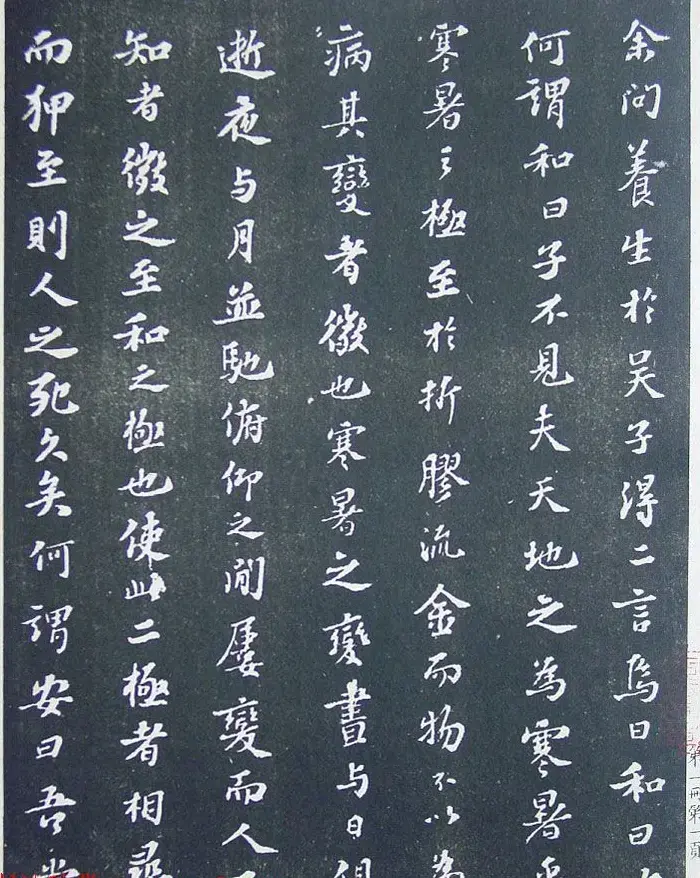 余問養生於吳子得二言焉曰和曰
何謂和曰子不見夫天地之為寒暑乎
寒暑之極至於折膠流金而物不以為
病其變者微也寒暑之變晝與日俱
逝夜與月並馳俯仰之間屢變而人
知者微之至和之極也使此二極者相尋
而狎至則人之死久矣何謂安曰吾
第一冊第一頁